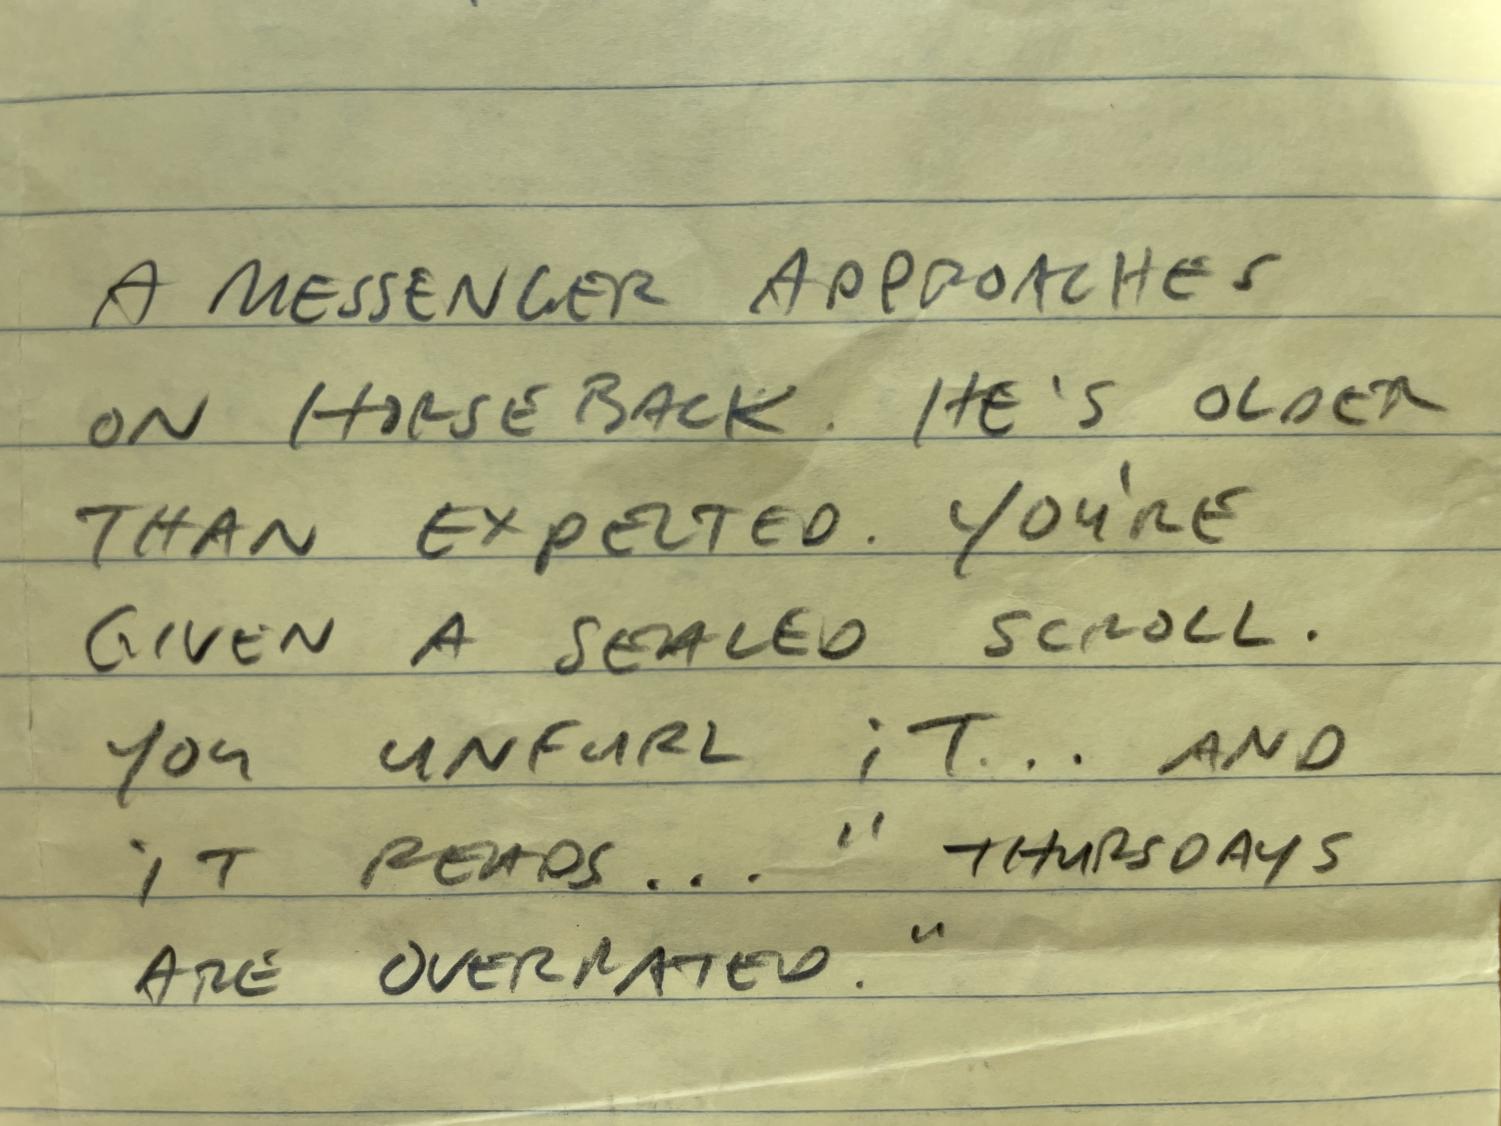 A MESSENGER APPROACHES
ON HORSEBACK. HE'S OLDER
THAN EXPECTED. YOU'RE
GIVEN A SEALED SCROLL.
YOU UNFURL iT... AND
iT READS... "THURSDAYS
ARE OVERRATED."